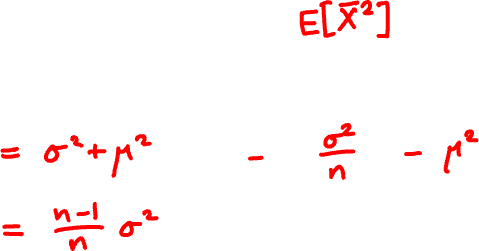 E[X̄²]
= σ² + μ² - σ²/n - μ²
= n-1/n σ²